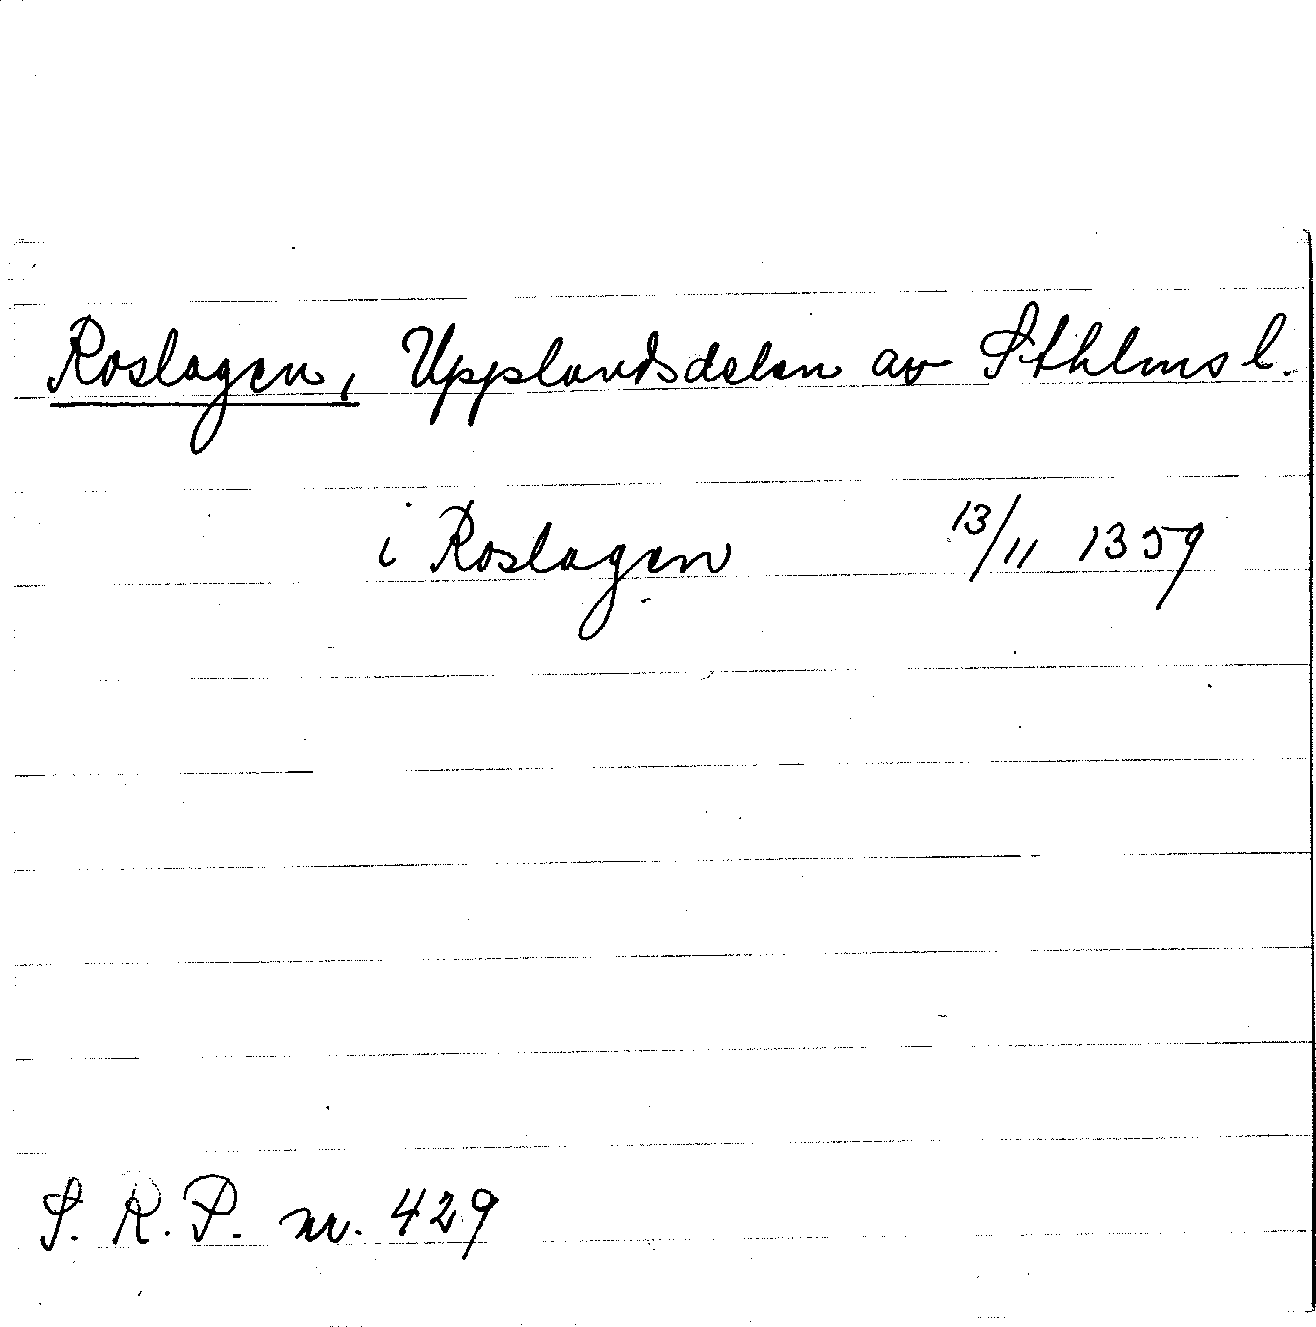 Roslagen, Upplandsdelen av Sthlms l.
i Roslagen 13/11 1359
S. R. P. nr. 429